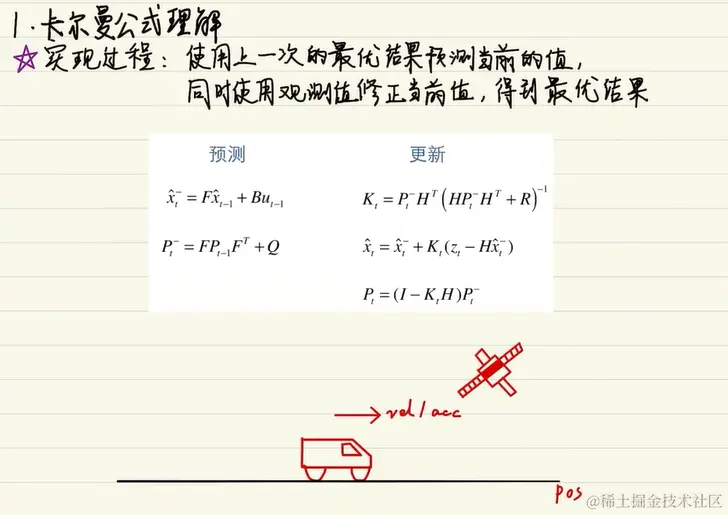 1.卡尔曼公式理解
☆实现过程：使用上一次的最优结果预测当前的值，
同时使用观测值修正当前值，得到最优结果
预测 更新
x̂ₜ⁻ = Fx̂ₜ₋₁ + Buₜ₋₁ Kₜ = Pₜ⁻Hᵀ(HPₜ⁻Hᵀ + R)⁻¹
Pₜ⁻ = FPₜ₋₁Fᵀ + Q x̂ₜ = x̂ₜ⁻ + Kₜ(zₜ − Hx̂ₜ⁻)
Pₜ = (I − KₜH)Pₜ⁻
vel/acc
pos
@稀土掘金技术社区